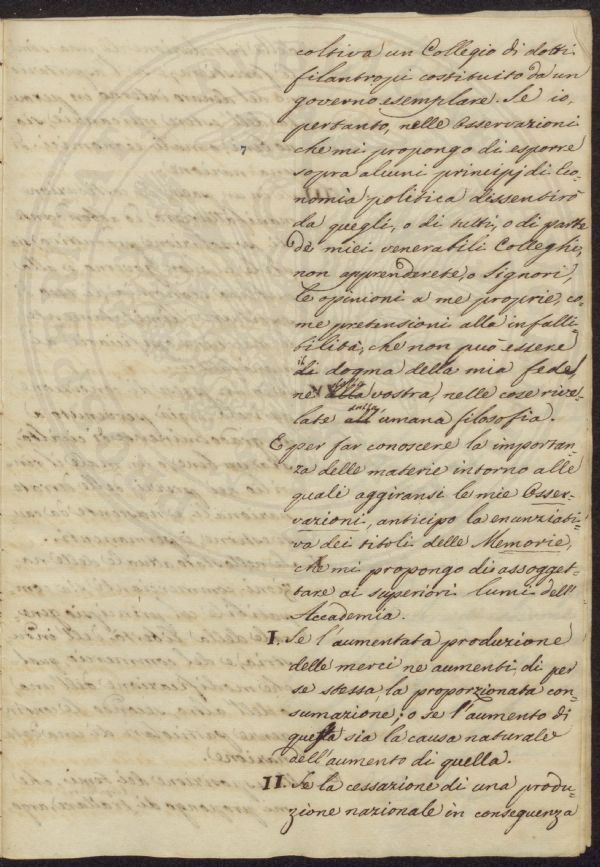 coltiva un Collegio di dotti
filantropi costituito da un
governo esemplare. Se io,
pertanto, nelle Osservazioni
7
che mi propongo di esporre
sopra alcuni principj di Eco-
nomia politica dissentirò
da quegli, o di tutti, o di parte
de' miei venerabili Colleghi,
non apprenderete, o Signori,
le opinioni a me proprie, co-
me pretensioni alla infalli-
bilità, che non può essere
il
di dogma della mia fede,
della
nè alla vostra nelle cose rive-
dalla
late all' umana filosofia.
E per far conoscere la importan-
za delle materie intorno alle
quali aggiransi le mie Osser-
vazioni, anticipo la enunziati-
va dei titoli delle Memorie,
che mi propongo di assogget-
tare ai superiori lumi dell'
Accademia.
I. Se l'aumentata produzione
delle merci ne aumenti di per
se stessa la proporzionata con-
sumazione; o se l'aumento di
questa sia la causa naturale
dell'aumento di quella.
II. Se la cessazione di una produ-
zione nazionale in conseguenza